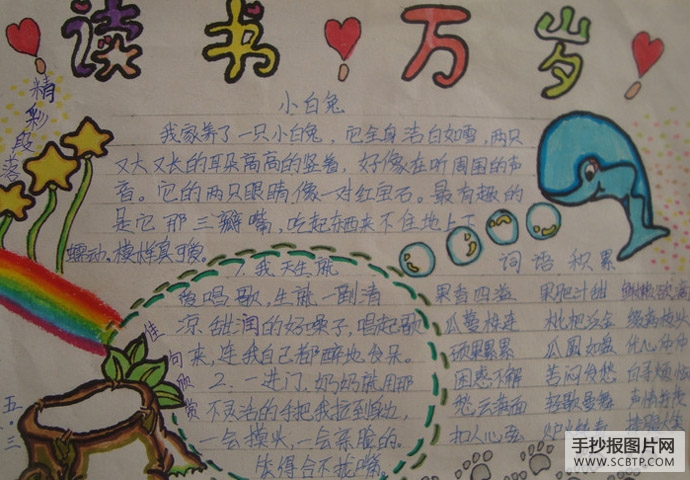 读书万岁
精彩段落
小白兔
我家养了一只小白兔，它全身洁白如雪，两只
又大又长的耳朵高高的竖着，好像在听周围的声
音。它的两只眼睛像一对红宝石。最有趣的
是它那三瓣嘴，吃起东西来不住地上下
蠕动，模样真可爱。
佳句欣赏
1. 我天生就
爱唱歌，生就一副清
凉甜润的好嗓子，唱起歌
来，连我自己都醉地
2. 一进门，奶奶就用那
不灵活的手把我拉到身边，
一会摸头，一会亲脸的。
合不拢嘴。
词语积累
果香四溢 果肥汁甜
瓜蔓 枇杷
硕果累累 瓜圆如盘 忧心忡忡
困惑不解 苦闷发愁
愁云满面 轻歌曼舞 声情并茂
扣人心弦
五.三
手抄报图片网
WWW.SCBTP.COM